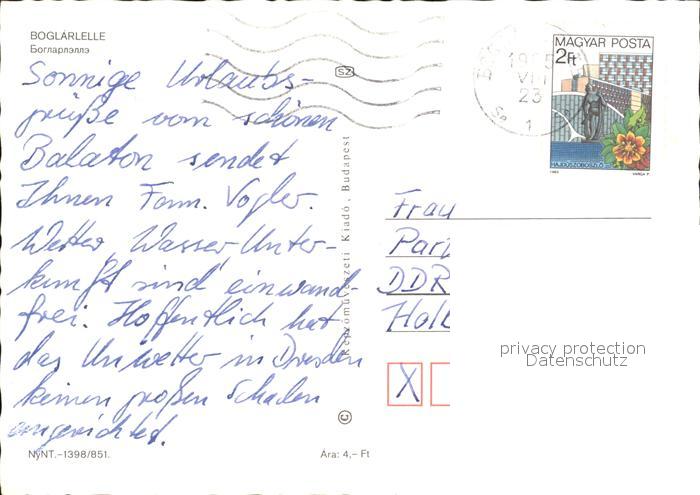 BOGLÁRLELLE
Богларлэллэ
Sonnige Urlaubs-
grüße vom schönen
Balaton sendet
Ihnen Fam. Vogler.
Wetter, Wasser, Unter-
kunft sind einwand-
frei. Hoffentlich hat
das Unwetter in Dresden
keinen großen Schaden
angerichtet.
NyNT.–1398/851.
Ára: 4,– Ft
SZ
Képzőművészeti Kiadó, Budapest
©
1985
VII
23
1
MAGYAR POSTA
2Ft
HAJDÚSZOBOSZLÓ
VARGA P.
Frau
DDR
X
privacy protection
Datenschutz